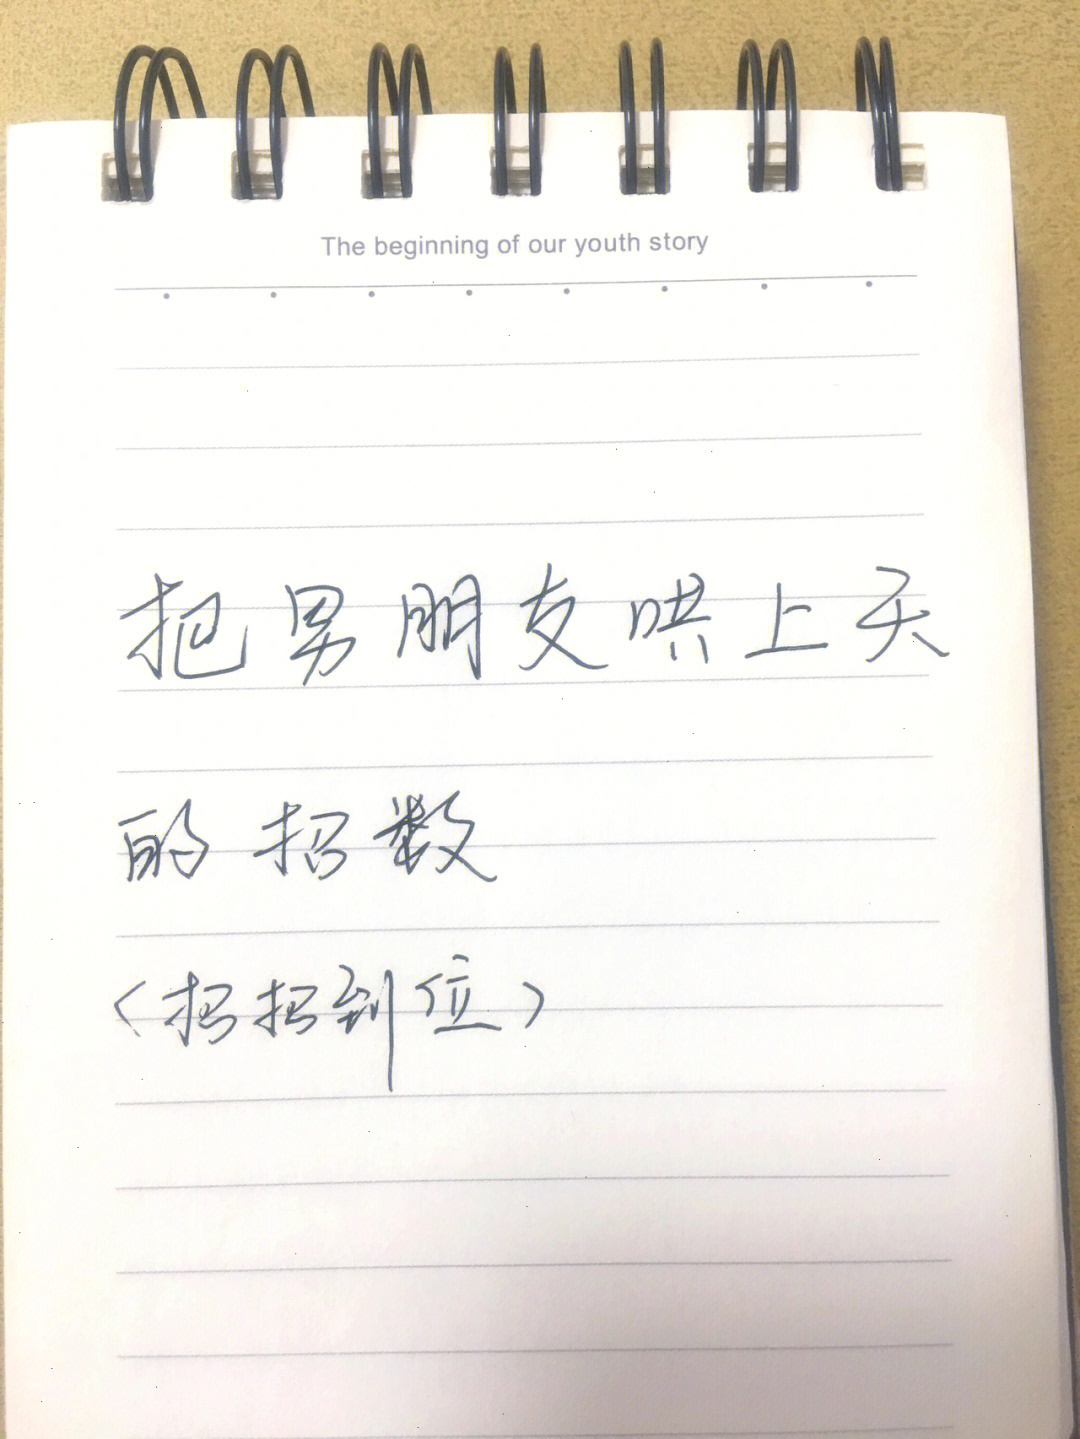 The beginning of our youth story
把男朋友哄上天
的招数
<招招到位>